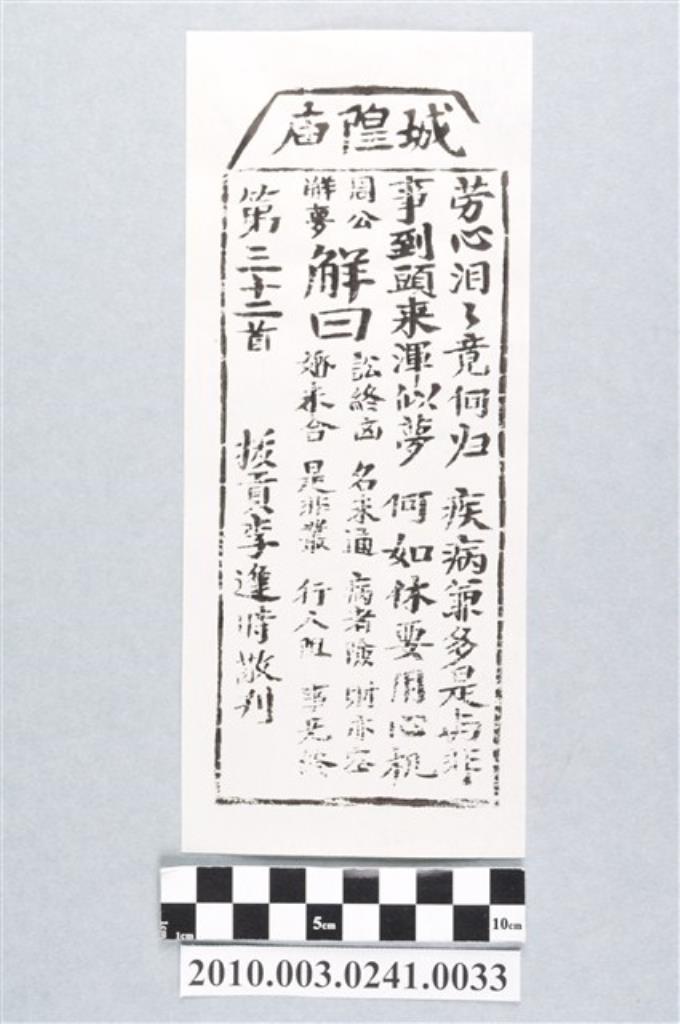 城隍庙
劳心汨々竟何归 疾病兼多是与非
事到頭来渾似夢 何如休要用心机
周公
觧夢
觧曰
訟終凶 名未通 病者險 財亦空
婚未合 是非叢 行人阻 事无終
第三十二首 拔貢李進時敬刋
5cm
1cm
10cm
2010.003.0241.0033